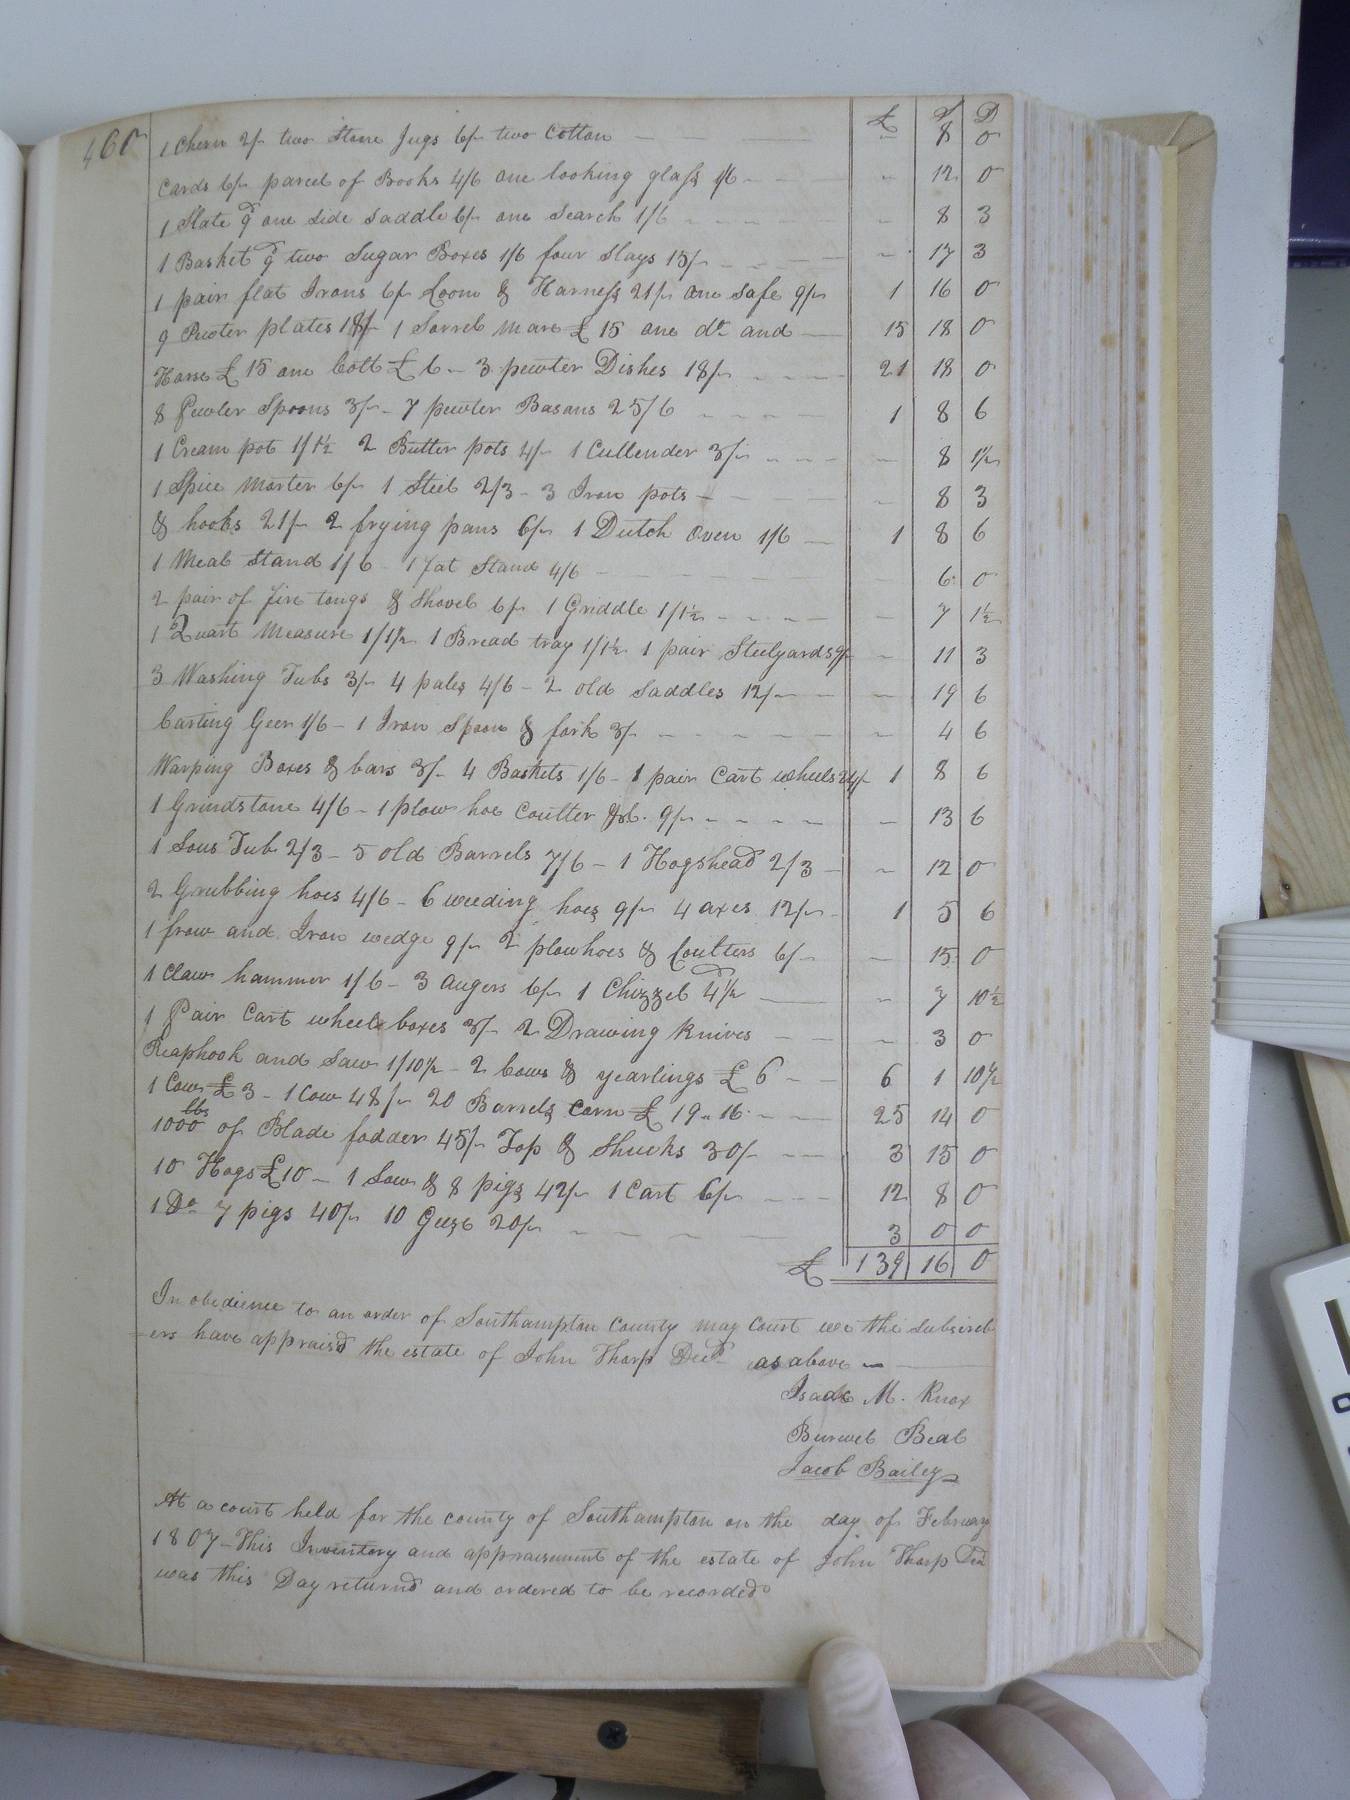 460
£ S D
1 Chern 2/- two Stone Jugs 6/- two Cotton - 8 0
Cards 6/- parcel of Books 4/6 one looking glass 1/6 - 12 0
1 Slate 9d one side saddle 6/- one Search 1/6 - 8 3
1 Basket 9d two Sugar Boxes 1/6 four Slays 15/- - 17 3
1 pair flat Irons 6/- Loom & Harness 21/- one Safe 9/- 1 16 0
9 Pewter plates 18/- 1 Sorrel Mare £ 15 one do and 15 18 0
Horse £ 15 one Colt £ 6 - 3 pewter Dishes 18/- 21 18 0
8 Pewter Spoons 3/- - 7 pewter Basans 25/6 1 8 6
1 Cream pot 1/1½ 2 Butter pots 4/- 1 Cullender 3/- - 8 1½
1 Spice Morter 6/- 1 Steel 2/3 - 3 Iron pots - - 8 3
& hooks 21/- 2 frying pans 6/- 1 Dutch oven 1/6 1 8 6
1 Meal Stand 1/6 - 1 fat Stand 4/6 - 6 0
2 pair of fire tongs & Shovel 6/- 1 Griddle 1/1½ - 7 1½
1 Quart Measure 1/1½ 1 Bread tray 1/1½ 1 pair Steelyards 9/- - 11 3
3 Washing Tubs 3/- 4 pales 4/6 - 2 old Saddles 12/- - 19 6
Carting Geer 1/6 - 1 Iron Spoon & fork 3/- - 4 6
Warping Boxes & bars 3/- 4 Baskets 1/6 - 1 pair Cart wheels 24/- 1 8 6
1 Grindstone 4/6 - 1 plow hoe Coulter &c. 9/- - 13 6
1 Sous Tub 2/3 - 5 old Barrels 7/6 - 1 Hogshead 2/3 - 12 0
2 Grubbing hoes 4/6 - 6 weeding hoes 9/- 4 axes 12/- 1 5 6
1 frow and Iron wedge 9/- 2 plowhoes & Coulters 6/- - 15 0
1 Claw hammer 1/6 - 3 augers 6/- 1 Chizzel 4½d - 7 10½
1 Pair Cart wheel boxes 3/- 2 Drawing Knives - 3 0
Reaphook and Saw 1/10½ - 2 Cows & yearlings £ 6 6 1 10½
1 Cow £ 3 - 1 Cow 48/- 20 Barrels Corn £ 19 " 16 25 14 0
1000 lbs of Blade fodder 45/- Top & Shucks 30/- 3 15 0
10 Hogs £10 - 1 Sow & 8 pigs 42/- 1 Cart 6/- 12 8 0
1 Do 7 pigs 40/- 10 Geese 20/- 3 0 0
£ 139 16 0
In obedience to an order of Southampton County may Court we the subscrib
ers have apprais'd the estate of John Tharp Decd as above
Isaac M. Knox
Burwel Beal
Jacob Bailey
At a court held for the county of Southampton on the day of February
1807 - This Inventory and appraisement of the estate of John Tharp Decd
was this Day returnd and ordered to be recorded